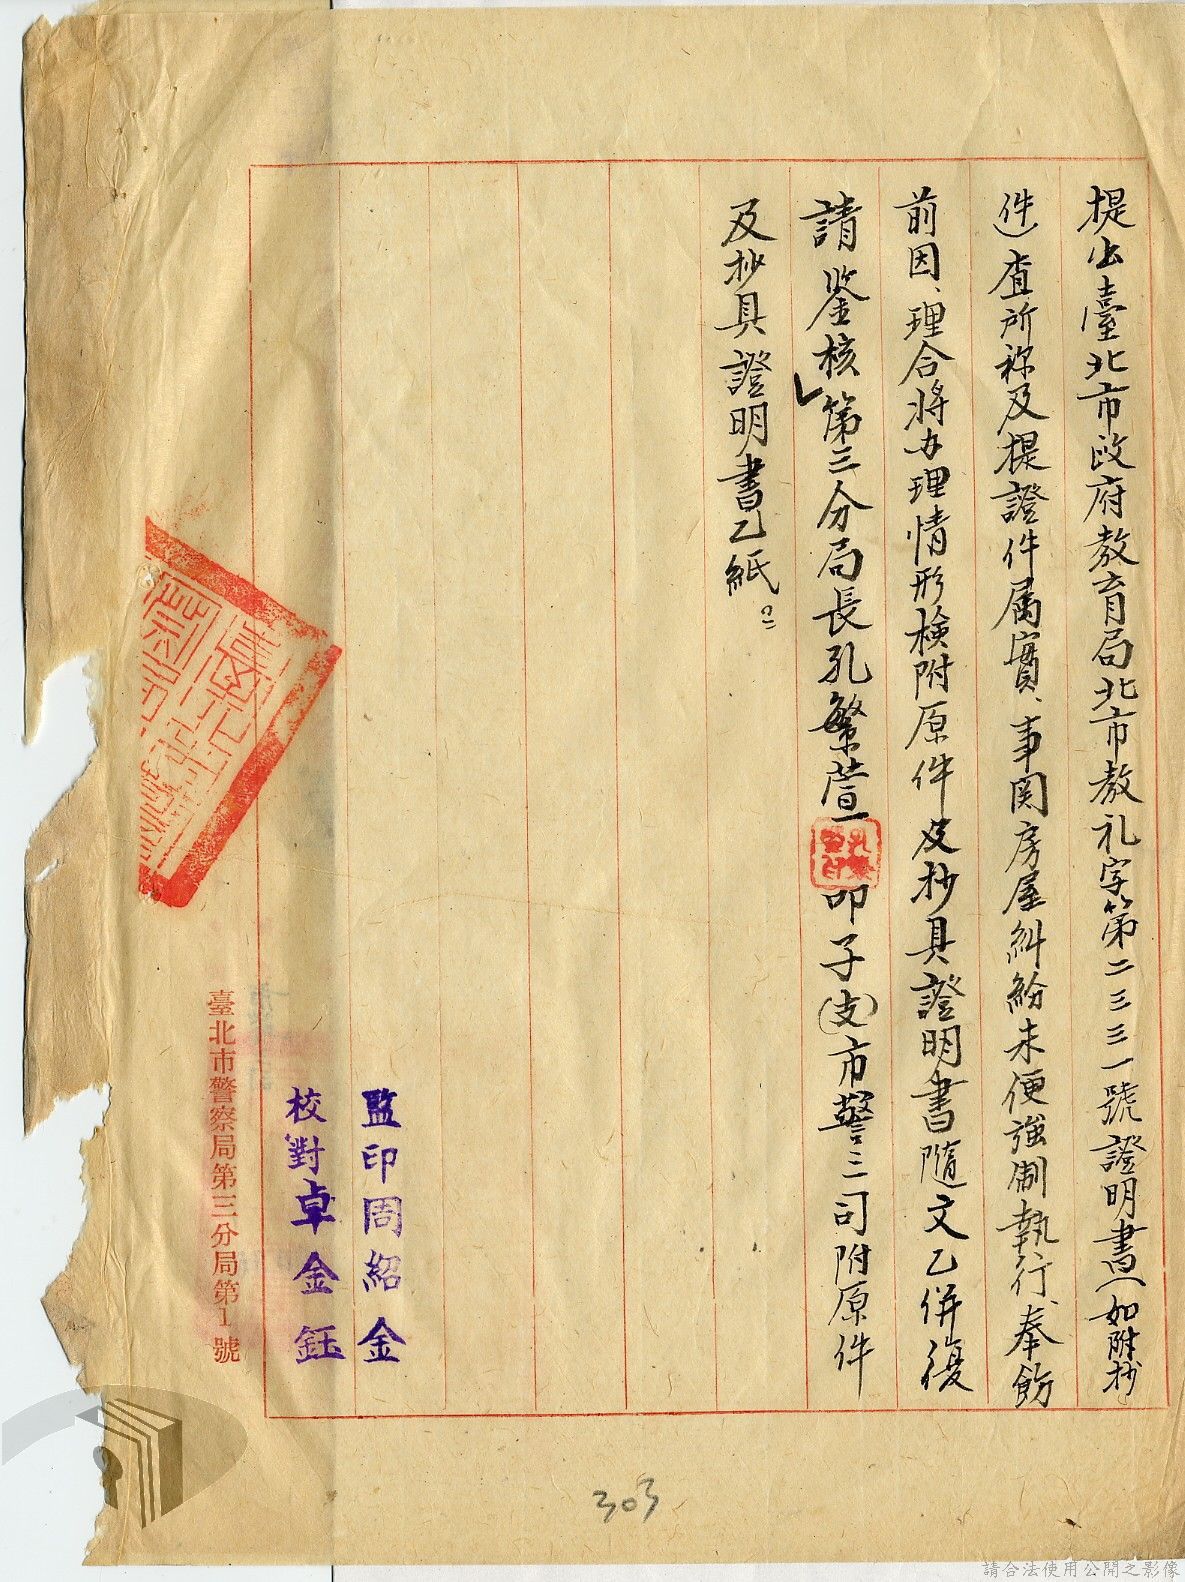 提出臺北市政府教育局北市教礼字第二三三一號證明書(如附抄
件)查所称及提證件属實、事関房屋糾紛未便強制執行、奉飭
前因、理合将办理情形檢附原件及抄具證明書隨文乙併復
請鉴核第三分局長孔繁萱叩子(支)市警三司附原件
及抄具證明書乙紙。
監印周紹金
校對卓金鈺
臺北市警察局第三分局第1號
303
請合法使用公開之影像